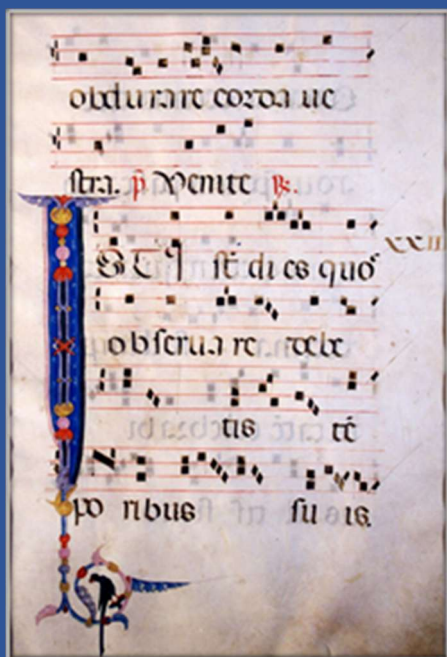 obdurare corda ue
stra. p̄ Venite ℟.
ISTI st̄ dies quos
XXII
obseruare debe
tis tē
poribus suis.